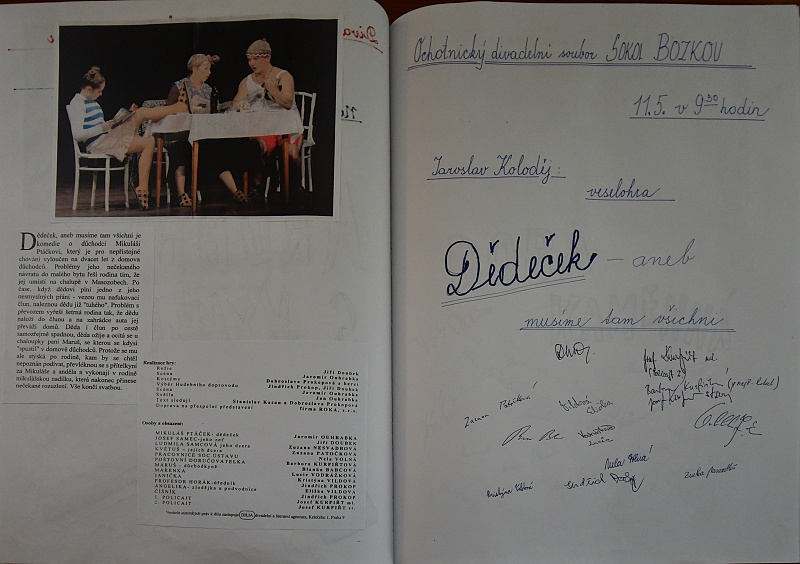 Dědeček, aneb musíme tam všichni je
komedie o důchodci Mikuláši
Ptáčkovi, který je pro nepřístojné
chování vyloučen na dvacet let z domova
důchodců. Problémy jeho nečekaného
návratu do malého bytu řeší rodina tím, že
jej umístí na chalupě v Masozobech. Po
čase, když dědovi plní jedno z jeho
nesmyslných přání - vezou mu nafukovací
člun, naleznou dědu již "tuhého". Problém s
převozem vyřeší šetrná rodina tak, že dědu
naloží do člunu a na zahrádce auta jej
převáží domů. Děda i člun po cestě
samozřejmě spadnou, děda ožije a ocitá se u
chaloupky paní Maruš, se kterou se kdysi
"spustil" v domově důchodců. Protože se mu
ale stýská po rodině, kam by se chtěl
nepoznán podívat, převléknou se s přítelkyní
za Mikuláše a anděla a vykonají v rodině
mikulášskou nadílku, která nakonec přinese
nečekané rozuzlení. Vše končí svatbou.
Realizace hry:
Režie Jiří Doubek
Scéna Jaromír Ouhrabka
Kostýmy Dobroslava Prokopová a herci
Výběr hudebního doprovodu Jindřich Prokop, Jiří Doubek
Scéna Jaromír Ouhrabka
Světla Jan Ouhrabka
Text sledují Stanislav Kazon a Dobroslava Prokopová
Doprava na přespolní představení firma ROKA, s.r.o.
Osoby a obsazení:
MIKULÁŠ PTÁČEK- dědeček Jaromír OUHRABKA
JOSEF SAMEC-jeho zeť Jiří DOUBEK
LUDMILA SAMCOVÁ jeho dcera Zuzana NESVADBOVÁ
KVĚTUŠ - jejich dcera Zuzana PATOČKOVÁ
PRACOVNICE SOC.ÚSTAVU Nela VOLNÁ
POŠTOVNÍ DORUČOVATELKA Barbora KURFIŘTOVÁ
MARUŠ - důchodkyně Blanka BARČOVÁ
MAŘENKA Lucie VODRÁŽKOVÁ
ANIČKA Kristýna VILDOVÁ
PROFESOR HORÁK-úředník Jindřich PROKOP
ANGELIKA- zlodějka a podvodnice Eliška VILDOVÁ
ČÍŠNÍK Jindřich PROKOP
1. POLICAJT Josef KURFIŘT ml.
2. POLICAJT Josef KURFIŘT st.
DILIA
Ochotnický divadelní soubor SOKOL BOZKOV
11.5. v 9³⁰ hodin
Jaroslav Koloděj:
veselohra
Dědeček - aneb
musíme tam všichni
Zuzana Patočková
Nela Volná
Kristýna Vildová
Jindřich Prokop